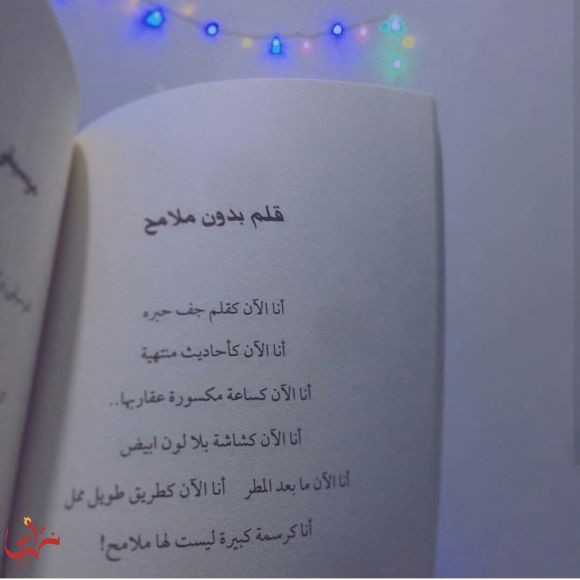 قلم بدون ملامح
أنا الآن كقلم جف حبره
أنا الآن كأحاديث منتهية
أنا الآن كساعة مكسورة عقاربها..
أنا الآن كشاشة بلا لون ابيض
أنا الآن ما بعد المطر أنا الآن كطريق طويل ممل
أنا كرسمة كبيرة ليست لها ملامح!